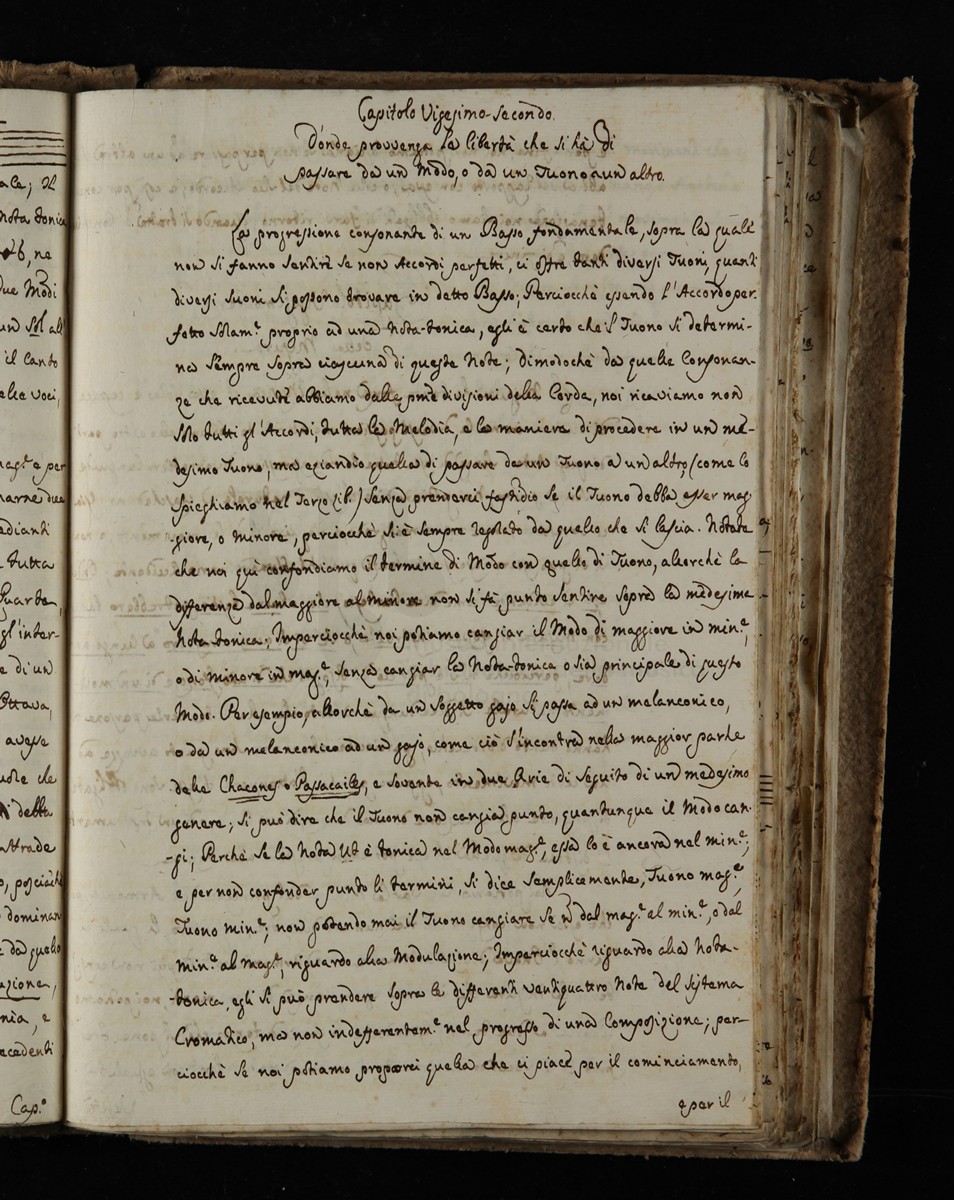 Capitolo Vigesimo-secondo.
D'onde provvenga la libertà che si hà di
passare da un Modo, o da un Tuono a un altro.
La progressione consonante di un Basso fondamentale, sopra la quale
non si fanno sentire se non Accordi perfetti, ci offre tanti diversi Tuoni, quanti
diversi suoni si possono trovare in detto Basso; Perciocchè essendo l'Accordo per-
fetto solam.e proprio ad una Nota-tonica, egli è certo che 'l Tuono si determi-
na sempre sopra ciascuna di queste Note; dimodochè da quelle Consonan-
ze che ricevute abbiamo dalle pme divisioni della Corda, noi ricaviamo non
solo tutti gl'Accordi, tutta la Melodia, e la maniera di procedere in un me-
desimo Tuono, ma eziandio quella di passare da un Tuono a un altro, (come lo
spieghiamo nel Terzo lib.) senza prenderci fastidio se il Tuono debba esser mag-
giore, o minore, perciocchè si è sempre regolato da quello che si lascia. Notate
che noi quì confondiamo il termine di Modo con quello di Tuono, allorchè la
differenza dal maggiore al minore non si fà punto sentire sopra la medesima
Nota-tonica; Imperciocchè noi potiamo cangiar il Modo di maggiore in min.e,
o di minore in mag.e, senza cangiar la Nota-tonica o sia principale di questo
Modo. Per esempio, allorchè da un soggetto gajo si passa ad un melanconico,
o da un melanconico ad un gajo, come ciò s'incontra nella maggior parte
delle Chacones o Passacailles, e sovente in due Arie di seguito di un medesimo
genere; si può dire che il Tuono non cangia punto, quantunque il Modo can-
gi; Perchè se la Nota Ut è tonica nel Modo mag.e, essa lo è ancora nel min.e;
e per non confonder punto li termini, si dice semplicemente, Tuono mag.e,
Tuono min.e; non potendo mai il Tuono cangiare se ñ dal mag.e al min.e, o dal
min.e al mag.e, riguardo alla Modulazione; Imperciocchè riguardo alla Nota-
tonica, egli si può prendere sopra le differenti ventiquattro Note del sistema
Cromatico, ma non indefferentem.e nel progresso di una Composizione; per-
ciocchè se noi potiamo proporci quella che ci piace per il cominciamento,
e per il
ale; Il
nota tonica
ne
due Modi
un Sol al
il Canto
alle voci,
mag.e e per
tutta
Quarta,
gl'inter-
e di un
Ottava,
avesse
che
della
strade
posciachè
dominan
da quello
azione,
nia, e
ecedenti
Cap.o